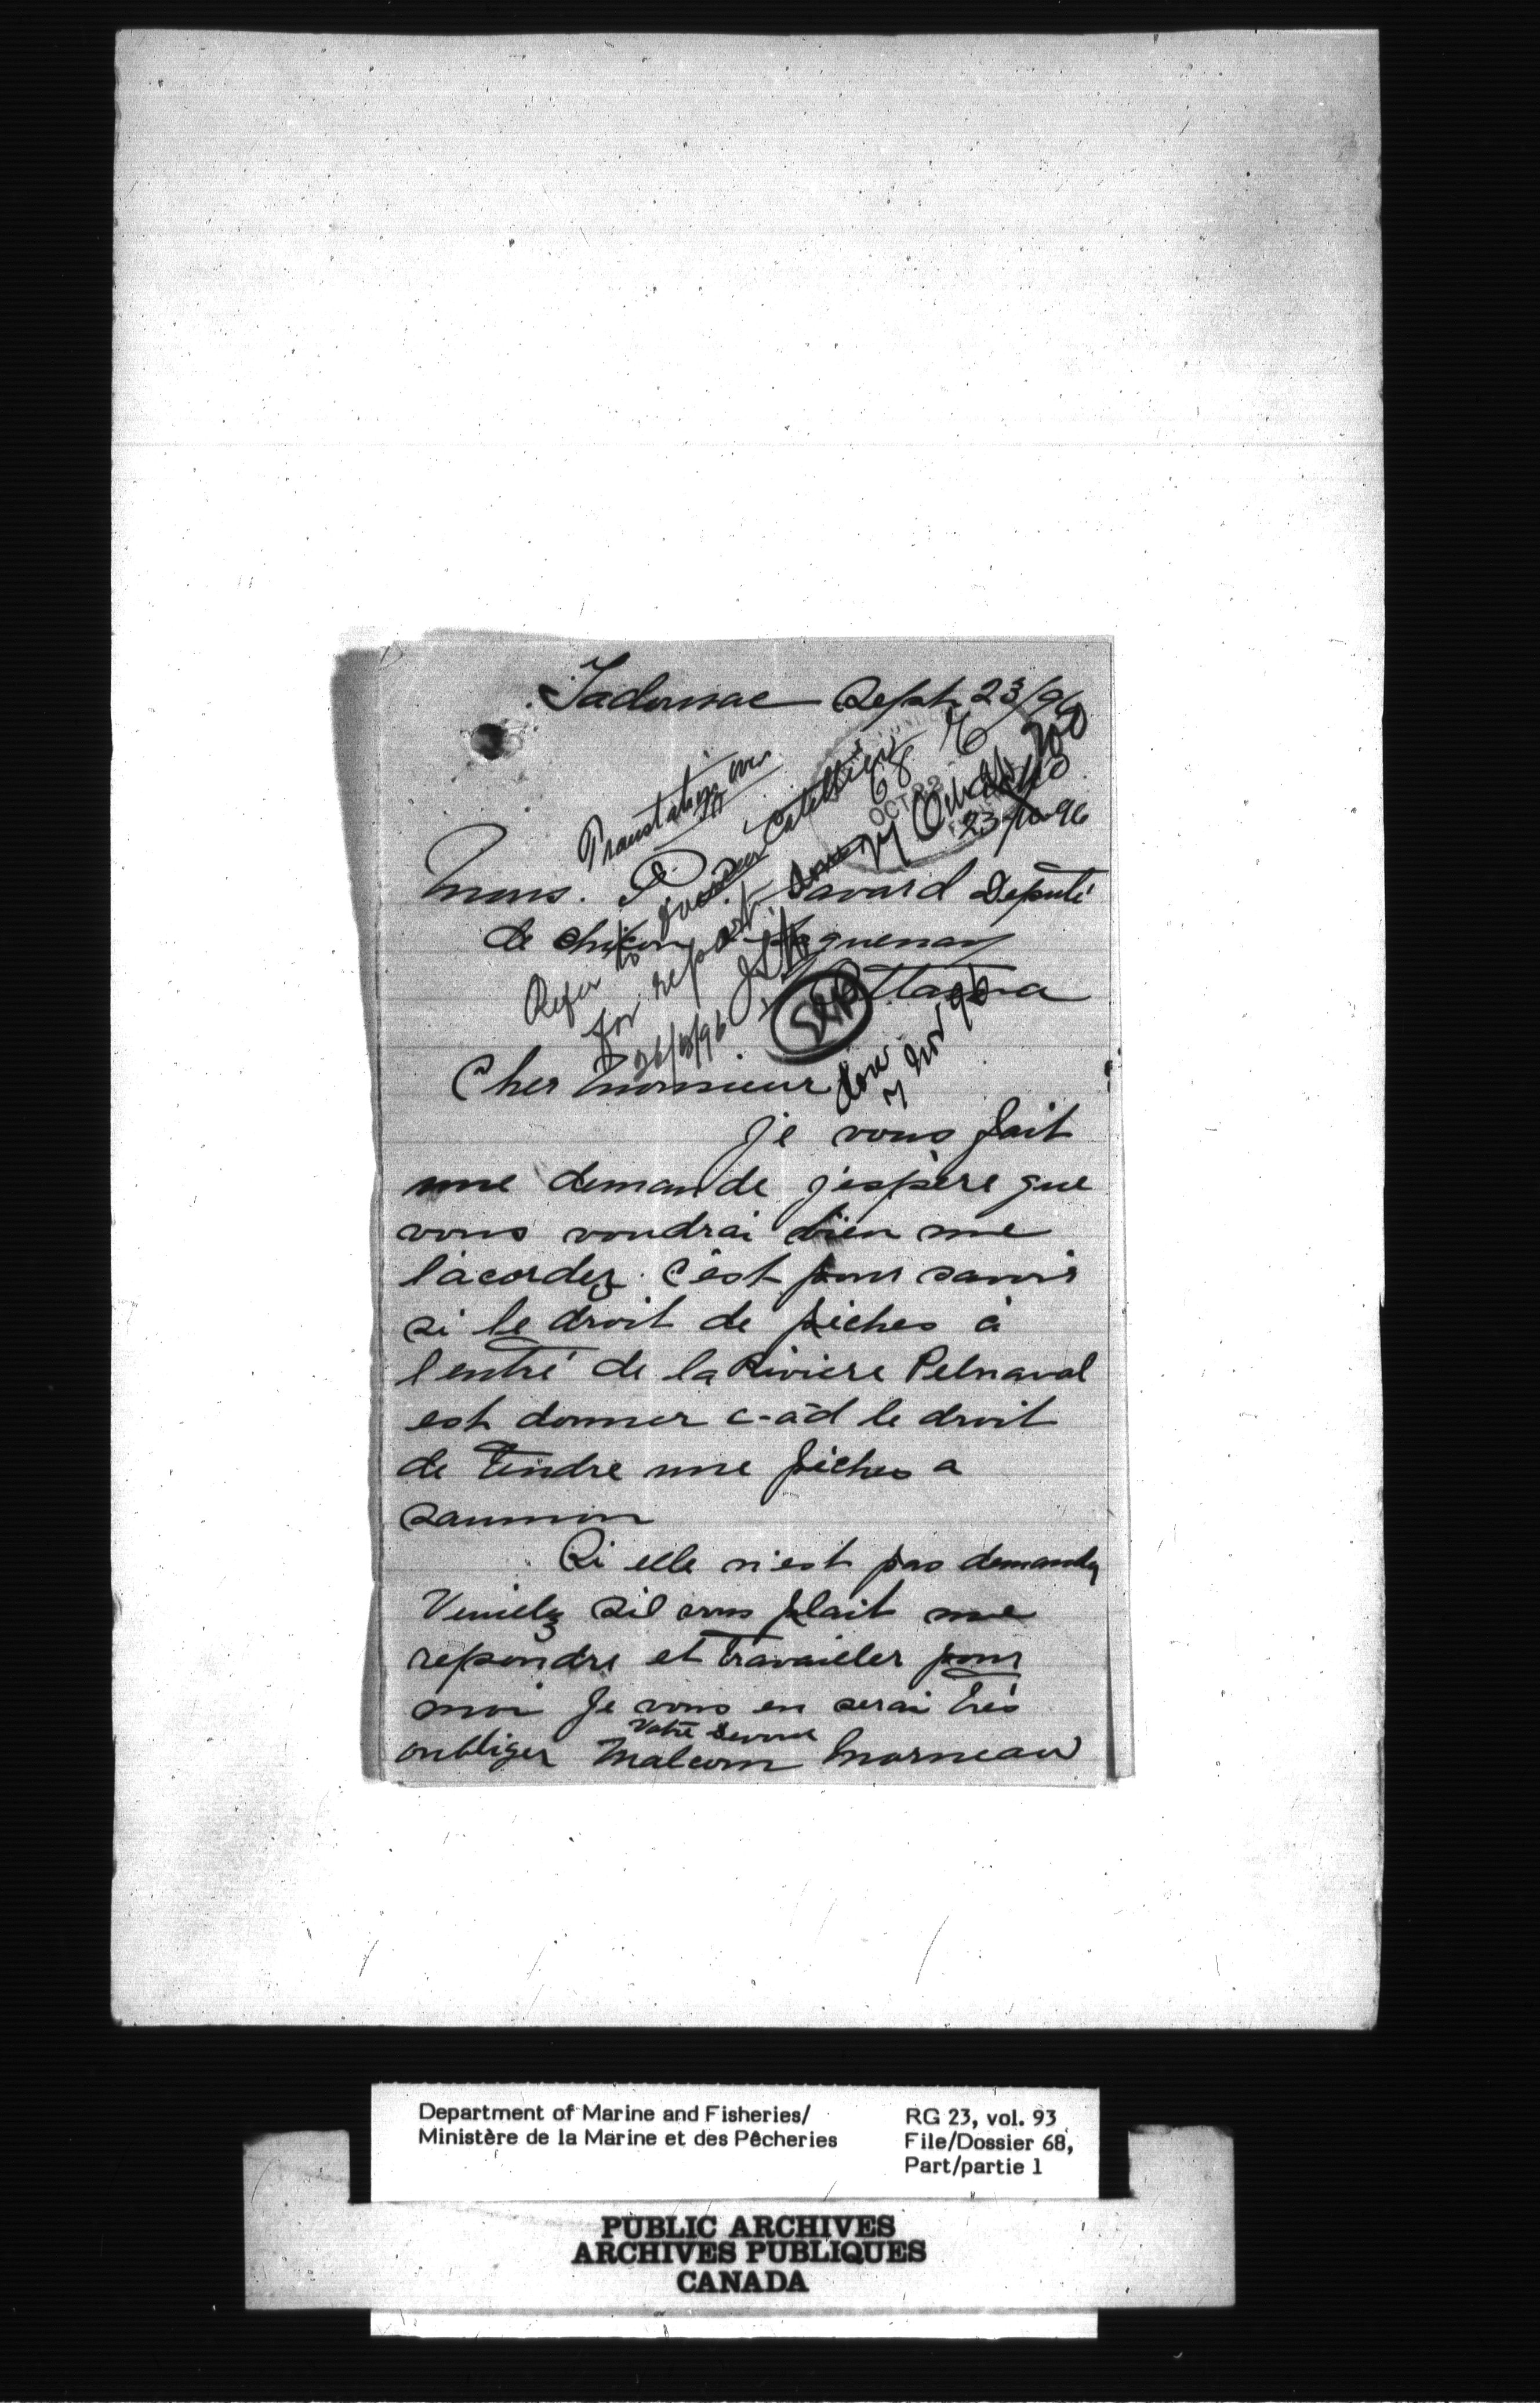 Tadousac Sept 23/96
Translation over
68
OCT 22
23-10-96
Mons. P. Savard Deputé
de Chicou Saguenay
Ottawa
Refer to
for report.
26/10/96
Done
7 Nov 96
Cher Monsieur
Je vous fait
une demande j'espère que
vous voudrai bien me
l'acordez. C'est pour savoir
si le droit de pêches à
l'entré de la Riviere Pelnaval
est donner c-à d le droit
de tendre une pêches a
saumon
Si elle n'est pas demandez
Veuielz sil vous plait me
repondre et travailler pour
moi Je vous en serai très
oubliger Votre Serviteur Malcom Morneau
Department of Marine and Fisheries/
Ministère de la Marine et des Pêcheries
RG 23, vol. 93
File/Dossier 68,
Part/partie 1
PUBLIC ARCHIVES
ARCHIVES PUBLIQUES
CANADA